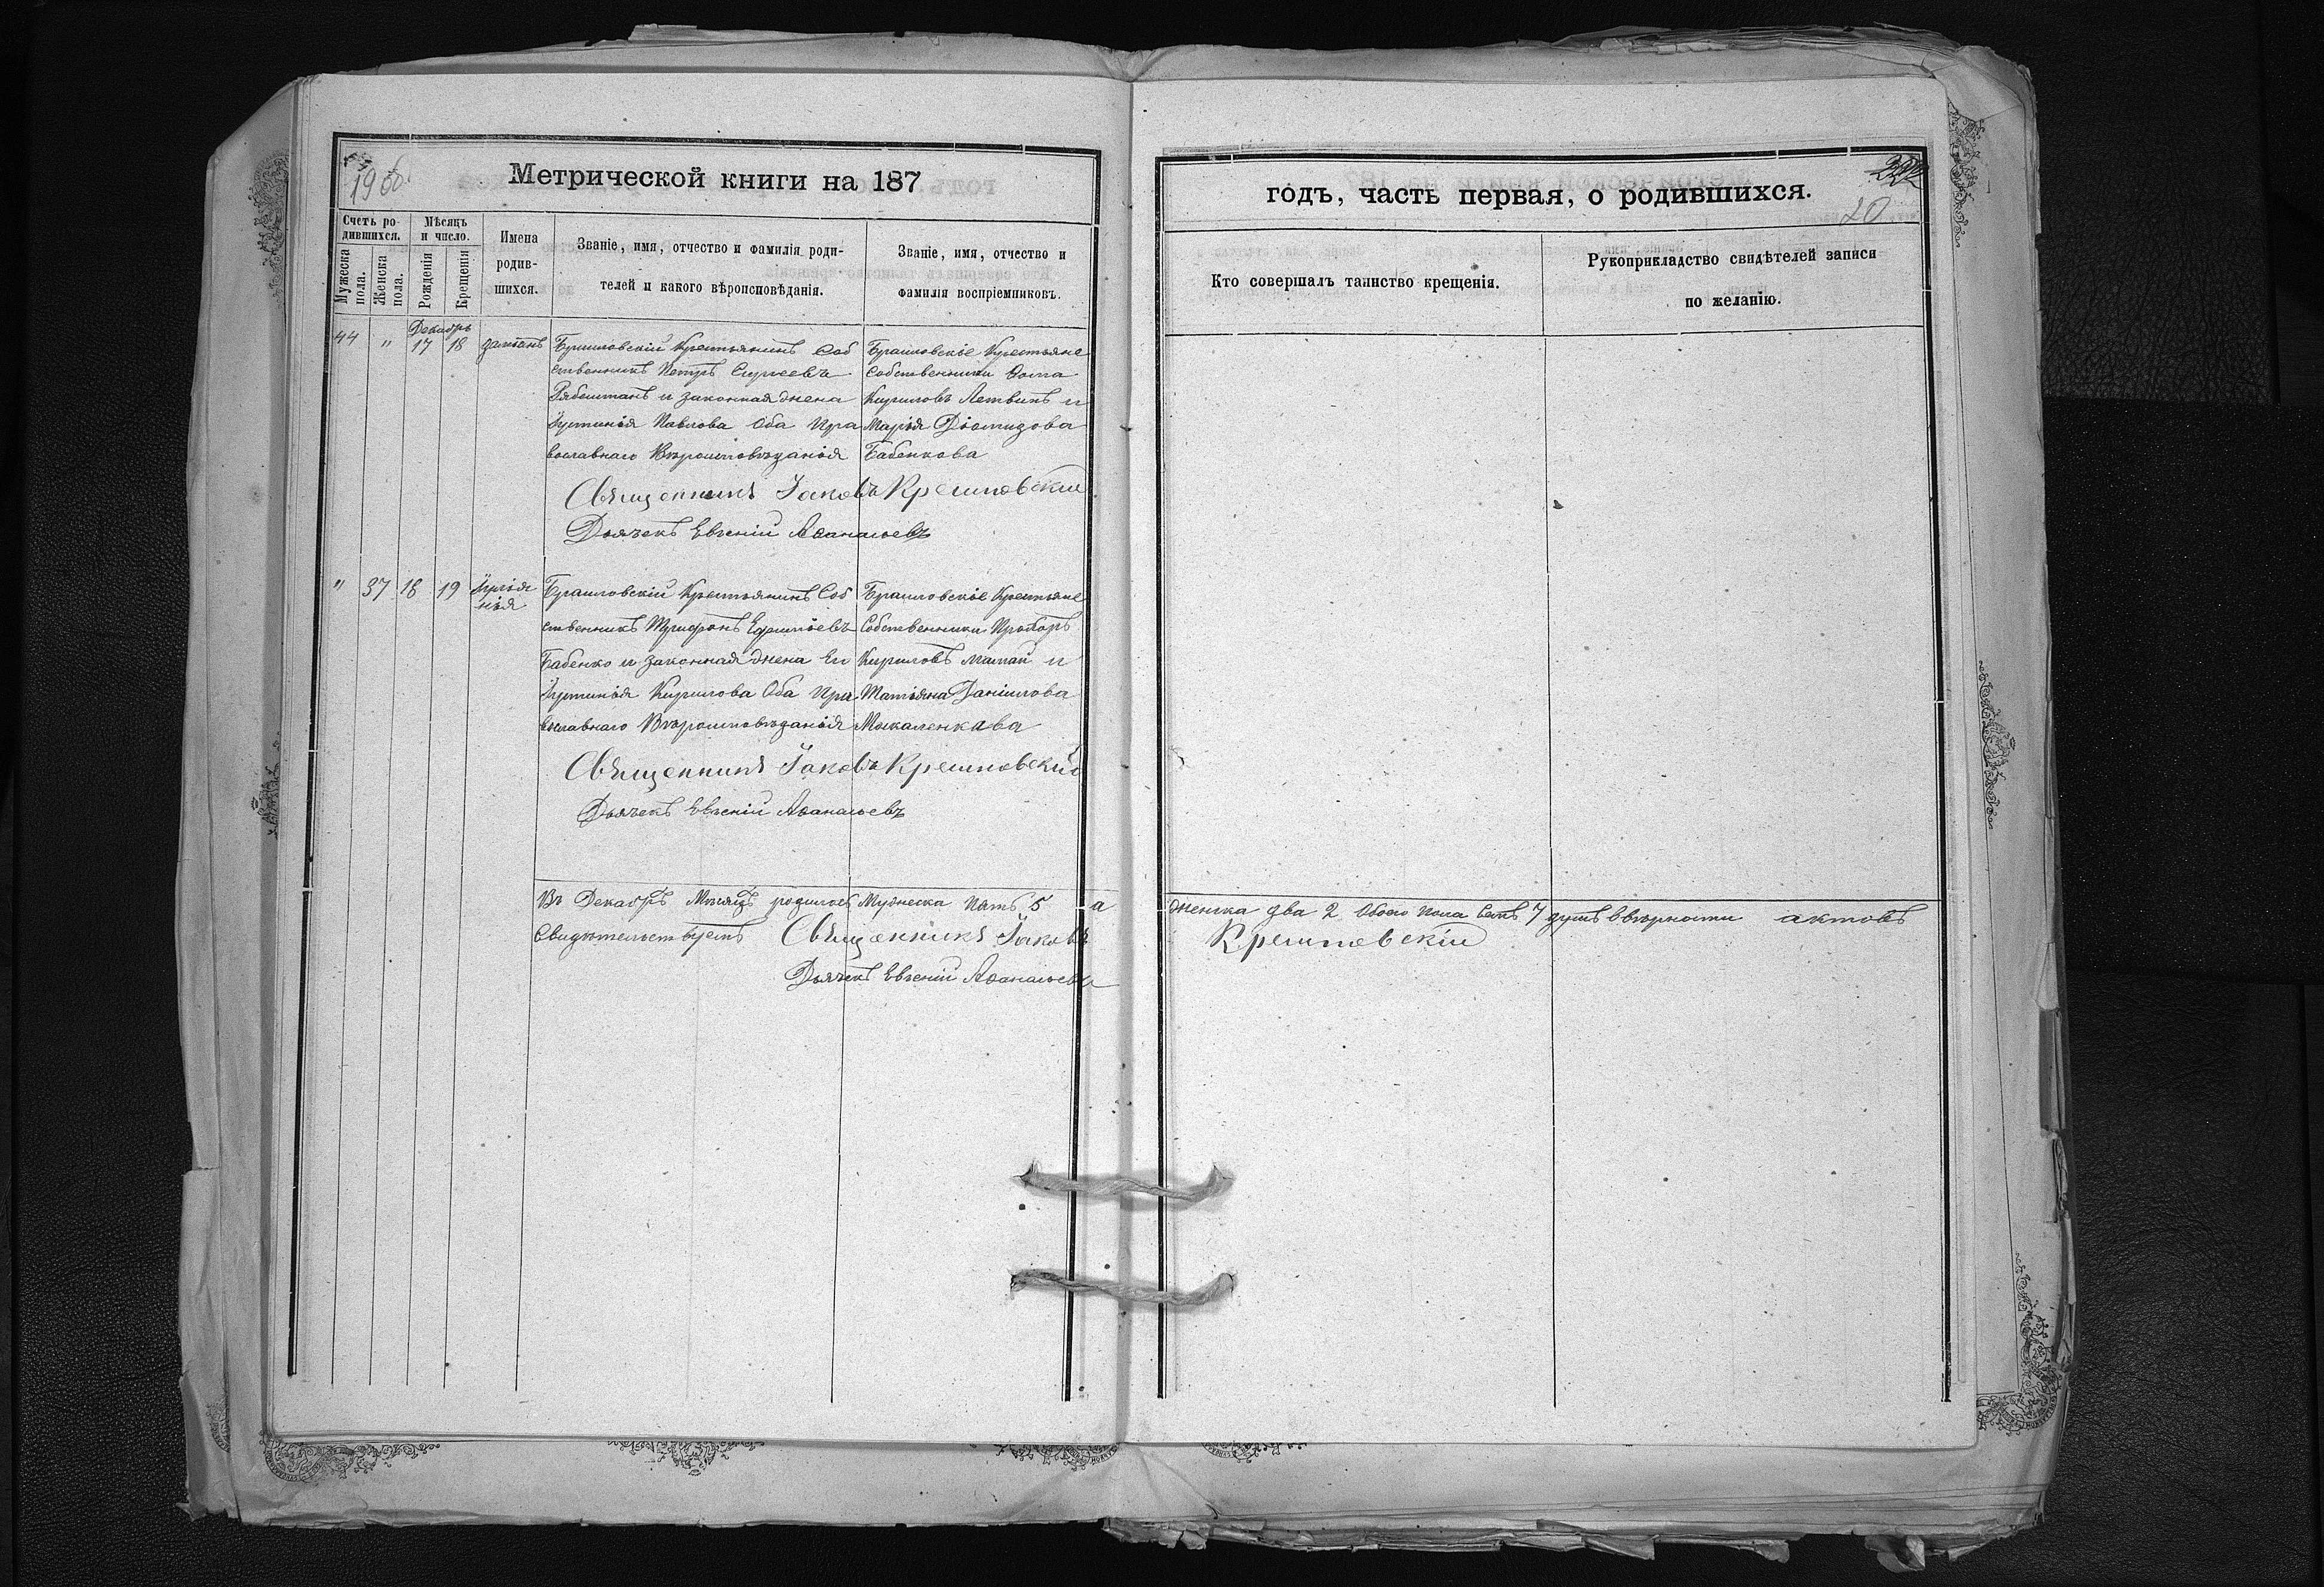 Метрической книги на 187
годъ, часть первая, о родившихся.
20
Счетъ ро-
дившихся.
Мѣсяцъ
и число.
Мужеска
пола.
Женска
пола.
Рожденія
Крещенія
Имена
родив-
шихся.
Званіе, имя, отчество и фамилія роди-
телей и какого вѣроисповѣданія.
Званіе, имя, отчество и
фамилія воспріемниковъ.
Кто совершалъ таинство крещенія.
Рукоприкладство свидѣтелей записи
по желанію.
Декабрь
44 " 17 18
Браиловскій Крестьянинъ Соб
ственникъ Петръ Сергеевъ
и законная жена
Іустинія Павлова Оба Пра
вославнаго Вѣроисповѣданія
Браиловскіе Крестьяне
Собственники Фома
Кириловъ Летвинъ и
Марія Діомидова
Бабенкова
Священникъ Іаковъ Крешповскій
Дьячекъ Евгеній Аѳанасьевъ
" 37 18 19 Іулія
нія
Браиловскій Крестьянинъ Соб
ственникъ Трифонъ Ефимьевъ
Бабенко и законная жена Ег
Іустинія Кирилова Оба Пра
вославнаго Вѣроисповѣданія
Браиловскіе Крестьяне
Собственники Прохоръ
Кириловъ Мамай и
Татіяна Даніилова
Мокаленкова
Священникъ Іаковъ Крешповскій
Дьячекъ Евгеній Аѳанасьевъ
Въ Декабрѣ Мѣсяцѣ родилось Мужеска Пять 5 а женска два 2 Обоего Пола Семь 7 душъ Ввѣрности актовъ
Свидѣтельствуетъ Священникъ Іаковъ Крешповскій
Дьячекъ Евгеній Аѳанасьевъ